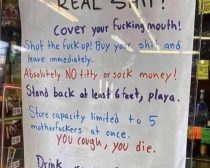 REAL SHIT!
Cover your fucking mouth!
Shut the fuck up! Buy your shit and
leave immediately.
Absolutely NO titty or sock money!
Stand back at least 6 feet, playa.
Store capacity limited to 5
motherfuckers at once.
YOU COUGH, YOU DIE.
Drink